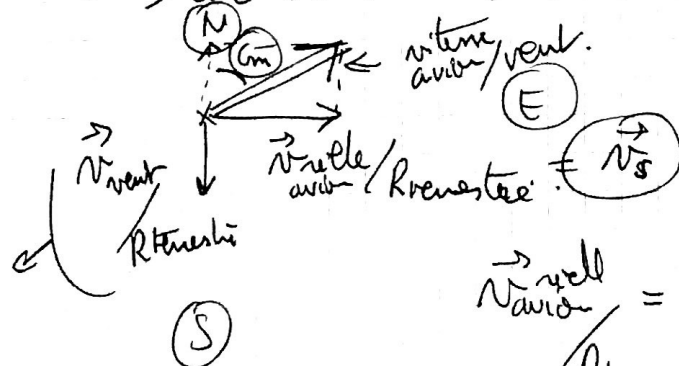 N
Cm
vitesse
avion / vent.
E
V vent / R terrestre
V réelle avion / R terrestre = Vs
S
V réelle avion / R =